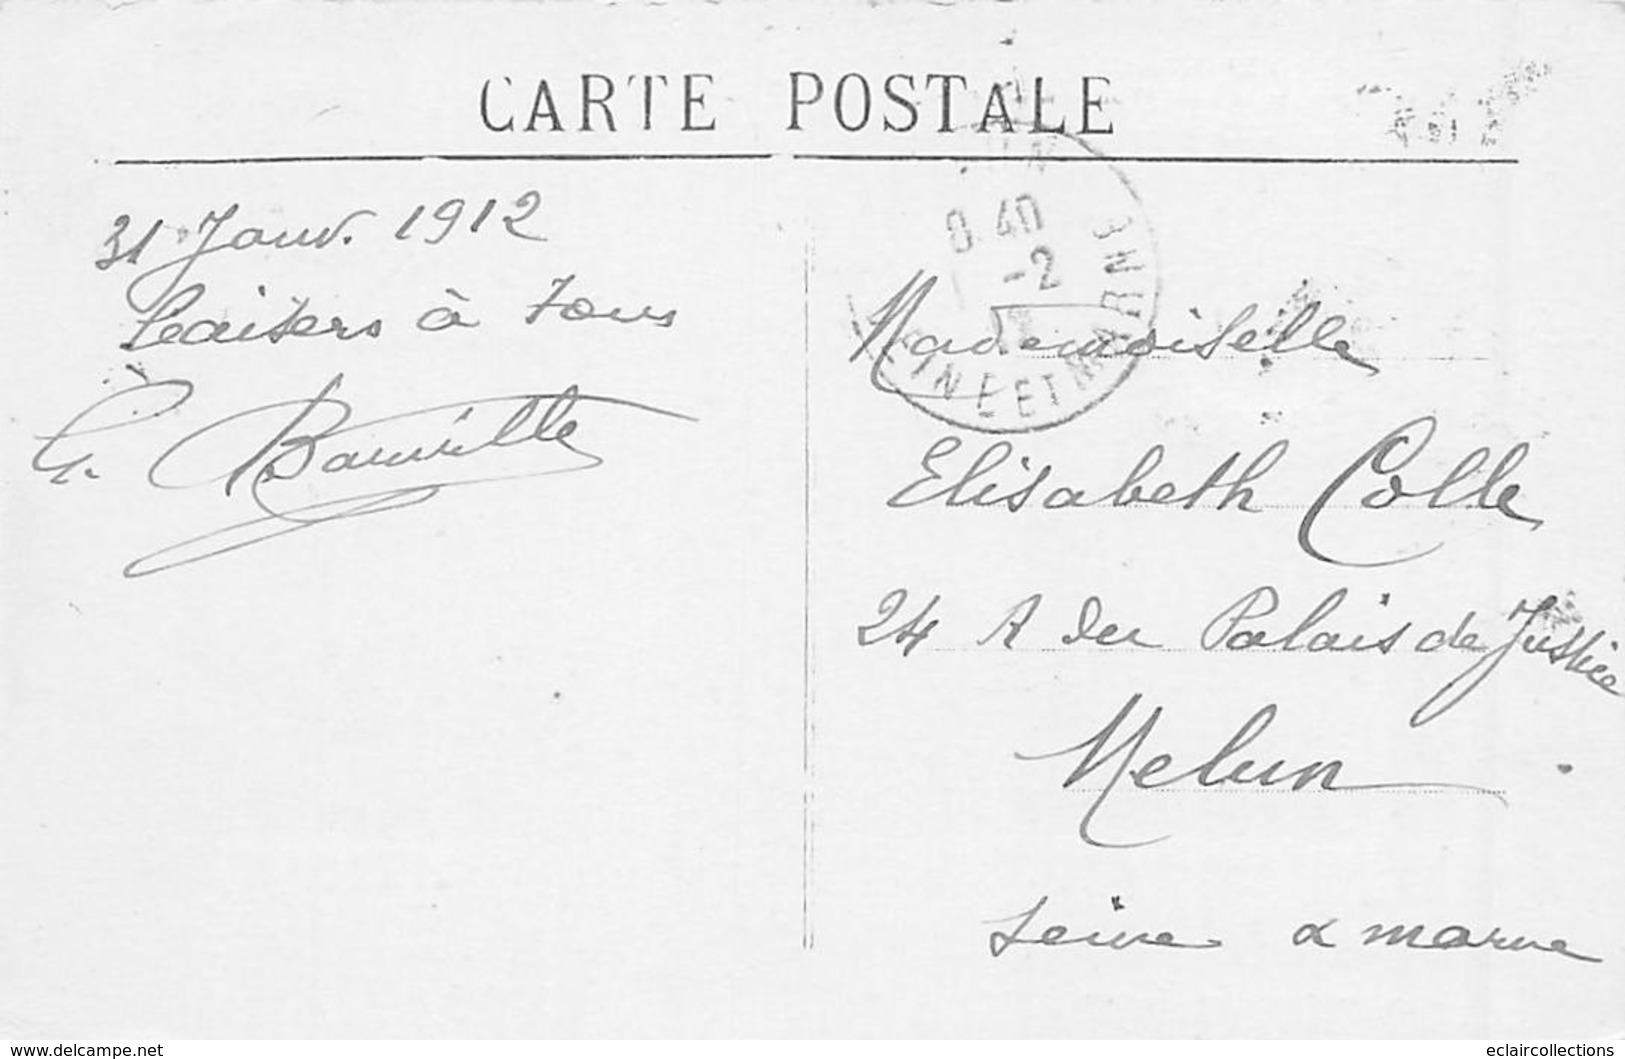 CARTE POSTALE
31 Janv. 1912
baisers à tous
G. Bauville
40
-2
SEINE ET MARNE
Mademoiselle
Elisabeth Colle
24 R du Palais de Justice
Melun
Seine & marne
www.delcampe.net
eclaircollections